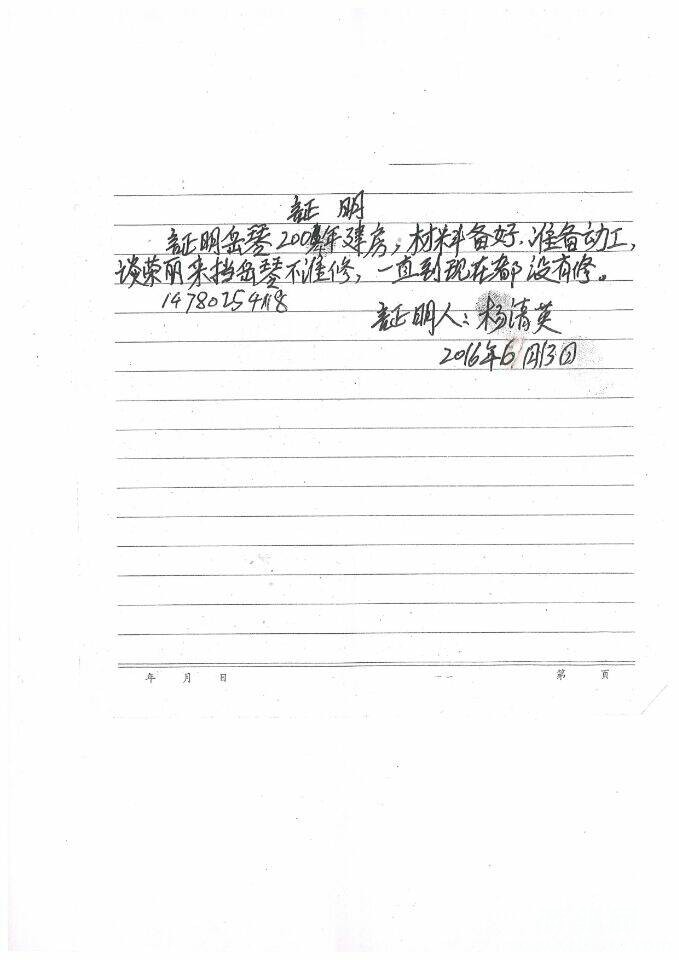 証明
証明岳琴200年建房,材料备好.准备动工,
谈荣丽来挡岳琴不准修,一直到现在都没有修。
14780254118
証明人:杨清英
2016年6月13日
年 月 日 第 页